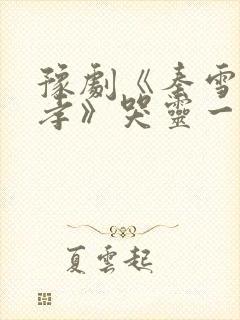 豫劇《秦雪
孝》哭靈一
夏雲起